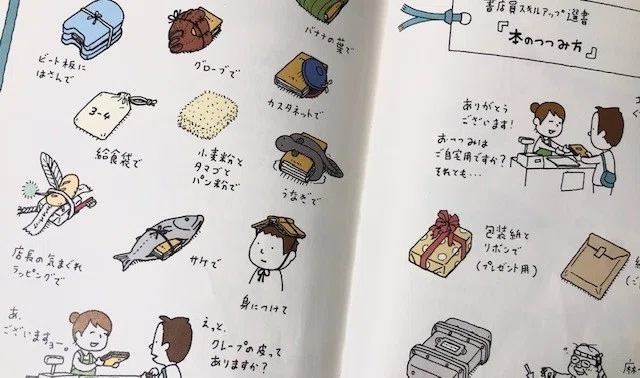 書店員スキルアップ選書
『本のつつみ方』
ありがとう
ございます!
おつつみは
ご自宅用ですか?
それとも・・・
包装紙と
リボンで
(プレゼント用)
麻
バナナの葉で
ビート板に
はさんで
グローブで
カスタネットで
3-4
給食袋で
小麦粉と
タマゴと
パン粉で
うなぎで
店長の気まぐれ
ラッピングで
サケで
身につけて
あ、
ございますョー。
えっと、
クレープの皮って
ありますか?